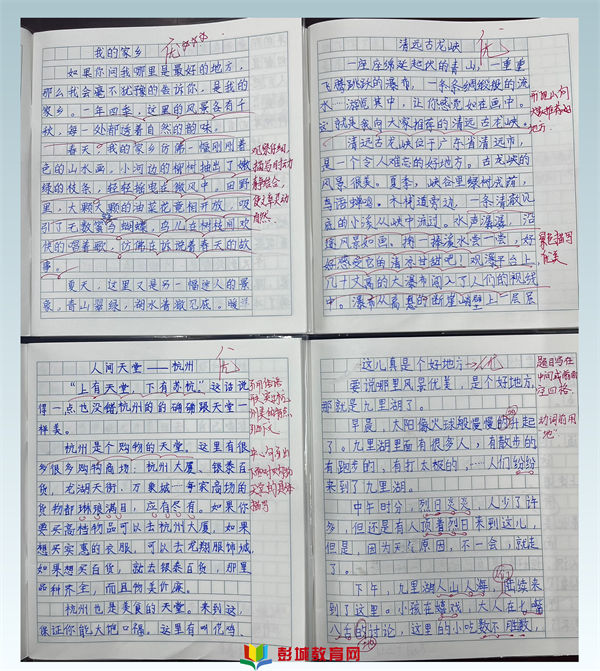 我的家乡 优
如果你问我哪里是最好的地方，
那么我会毫不犹豫的告诉你，是我的
家乡。一年四季，这里的风景各有千
秋，每一处都透着自然的韵味。
春天，我的家乡仿佛一幅刚刚着
色的山水画。小河边的柳树抽出了嫩
绿的枝条，轻轻摇曳在微风中。田野
里，大颗大颗的油菜花竞相开放，吸
引了无数蜜蜂蝴蝶，鸟儿在树枝间欢
快的唱着歌，仿佛在诉说着春天的故
事。
夏天，这里又是另一幅迷人的景
象。青山翠绿，湖水清澈见底。暖洋
清远古龙峡 优
一座座绵延起伏的青山，一重重
飞腾跳跃的瀑布，一条条绸缎般的流
水一游览其中，让你感觉如在画中。
这就是我向大家推荐的清远古龙峡。
清远古龙峡位于广东省清远市，
是一个令人难忘的好地方。古龙峡的
风景很美。夏季，峡谷里绿树成荫，
鸟语蝉鸣。木林道旁边，一条清澈见
底的小溪从峡中流过。水声潺潺，沿
途风景如画。掬一捧溪水尝一尝，好
好感受它的清凉甘甜吧！观瀑平台上，
几十丈高的大瀑布闯入了人们的视线
中。瀑布从高悬的断崖峭壁上一层层
景色描写
优美
人间天堂——杭州 优
“上有天堂，下有苏杭”这话说
得一点也没错杭州的的确确跟天堂一
样美。
杭州是个购物的天堂。这里有很
多很多购物商场：杭州大厦、银泰百
货、龙湖天街、万象城一每家商场的
货物都琳琅满目，应有尽有。如果你
要买高档物品可以去杭州大厦，如果
想买实惠的衣服，可以去龙翔服饰城，
如果想买百货，就去银泰百货，那里
品种齐全，而且物美价廉。
杭州也是美食的天堂。来到这，
保证你能大饱口福。这里有叫花鸡、
这儿真是个好地方 优
要说哪里风景优美，是个好地方，
那就是九里湖了。
早晨，太阳像火球般慢慢的升起
了。九里湖里面有很多人，有散步的
有跑步的，有打太极的，……人们纷纷
来到了九里湖。
中午时分，烈日炎炎，人少了许
多，但还是有人顶着烈日来到这儿，
但是，因为天气原因，不一会，就走
了。
下午，九里湖人山人海，陆续来
到了这里。小孩在嬉戏，大人在七嘴
八舌的讨论，这里的小吃数不胜数，
题目写在
动词前用
地
彭城教育网